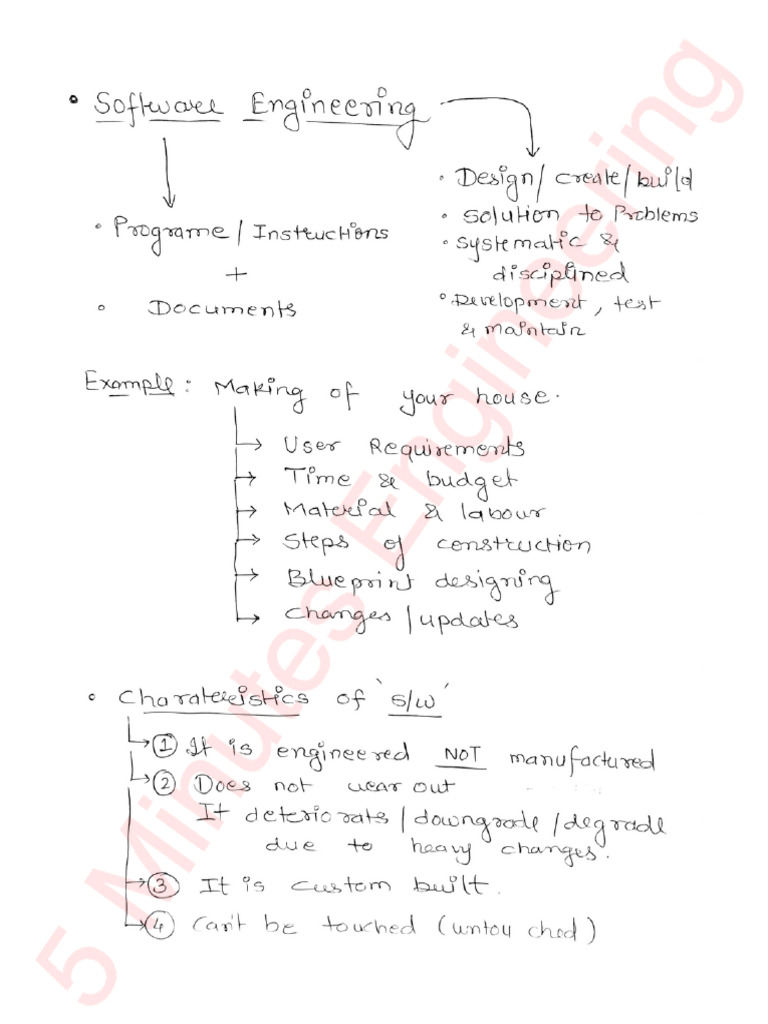 • Software Engineering
• Design / create / build
• Solution to Problems
• Systematic &
disciplined
• Development, test
& maintain
• Programe / Instructions
+
• Documents
Example : Making of your house.
User Requirements
Time & budget
Material & labour
Steps of construction
Blueprint designing
Changes / updates
• Charateristics of 's/w'
① It is engineered NOT manufactured
② Does not wear out
It deteriorats / downgrade / degrade
due to heavy changes.
③ It is custom built.
④ Can't be touched (untouched)
5 Minutes Engineering